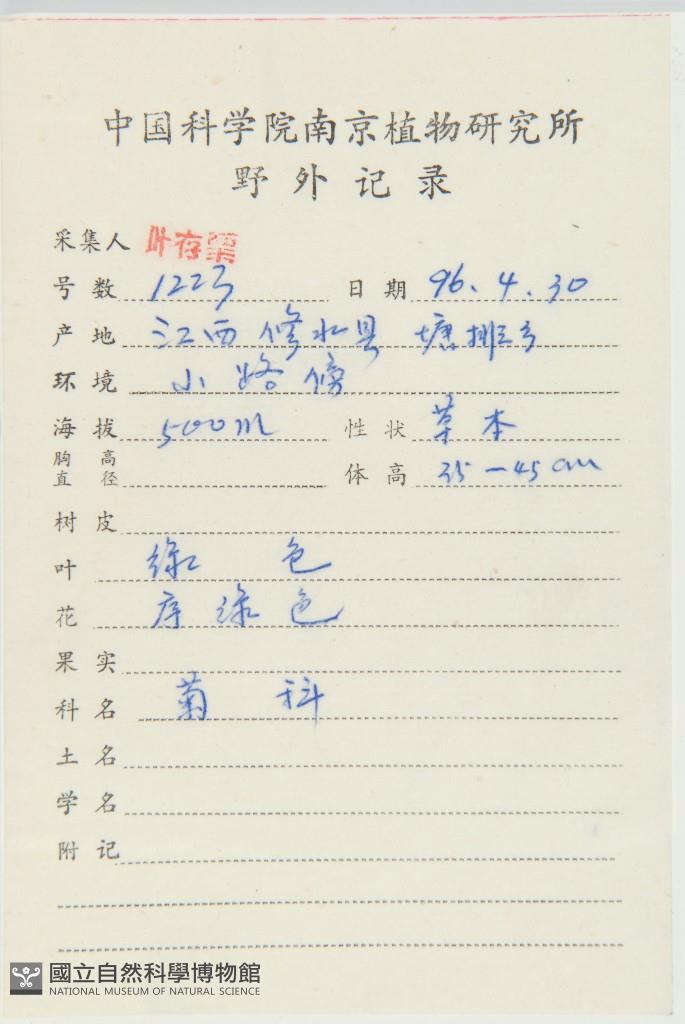 中国科学院南京植物研究所
野外记录
采集人 叶存粟
号数 1223 日期 96.4.30
产地 江西修水县 塘排乡
环境 小路傍
海拔 500m 性状 草本
胸高直径 体高 35-45cm
树皮
叶 绿色
花 序绿色
果实
科名 菊科
土名
学名
附记
國立自然科學博物館
NATIONAL MUSEUM OF NATURAL SCIENCE